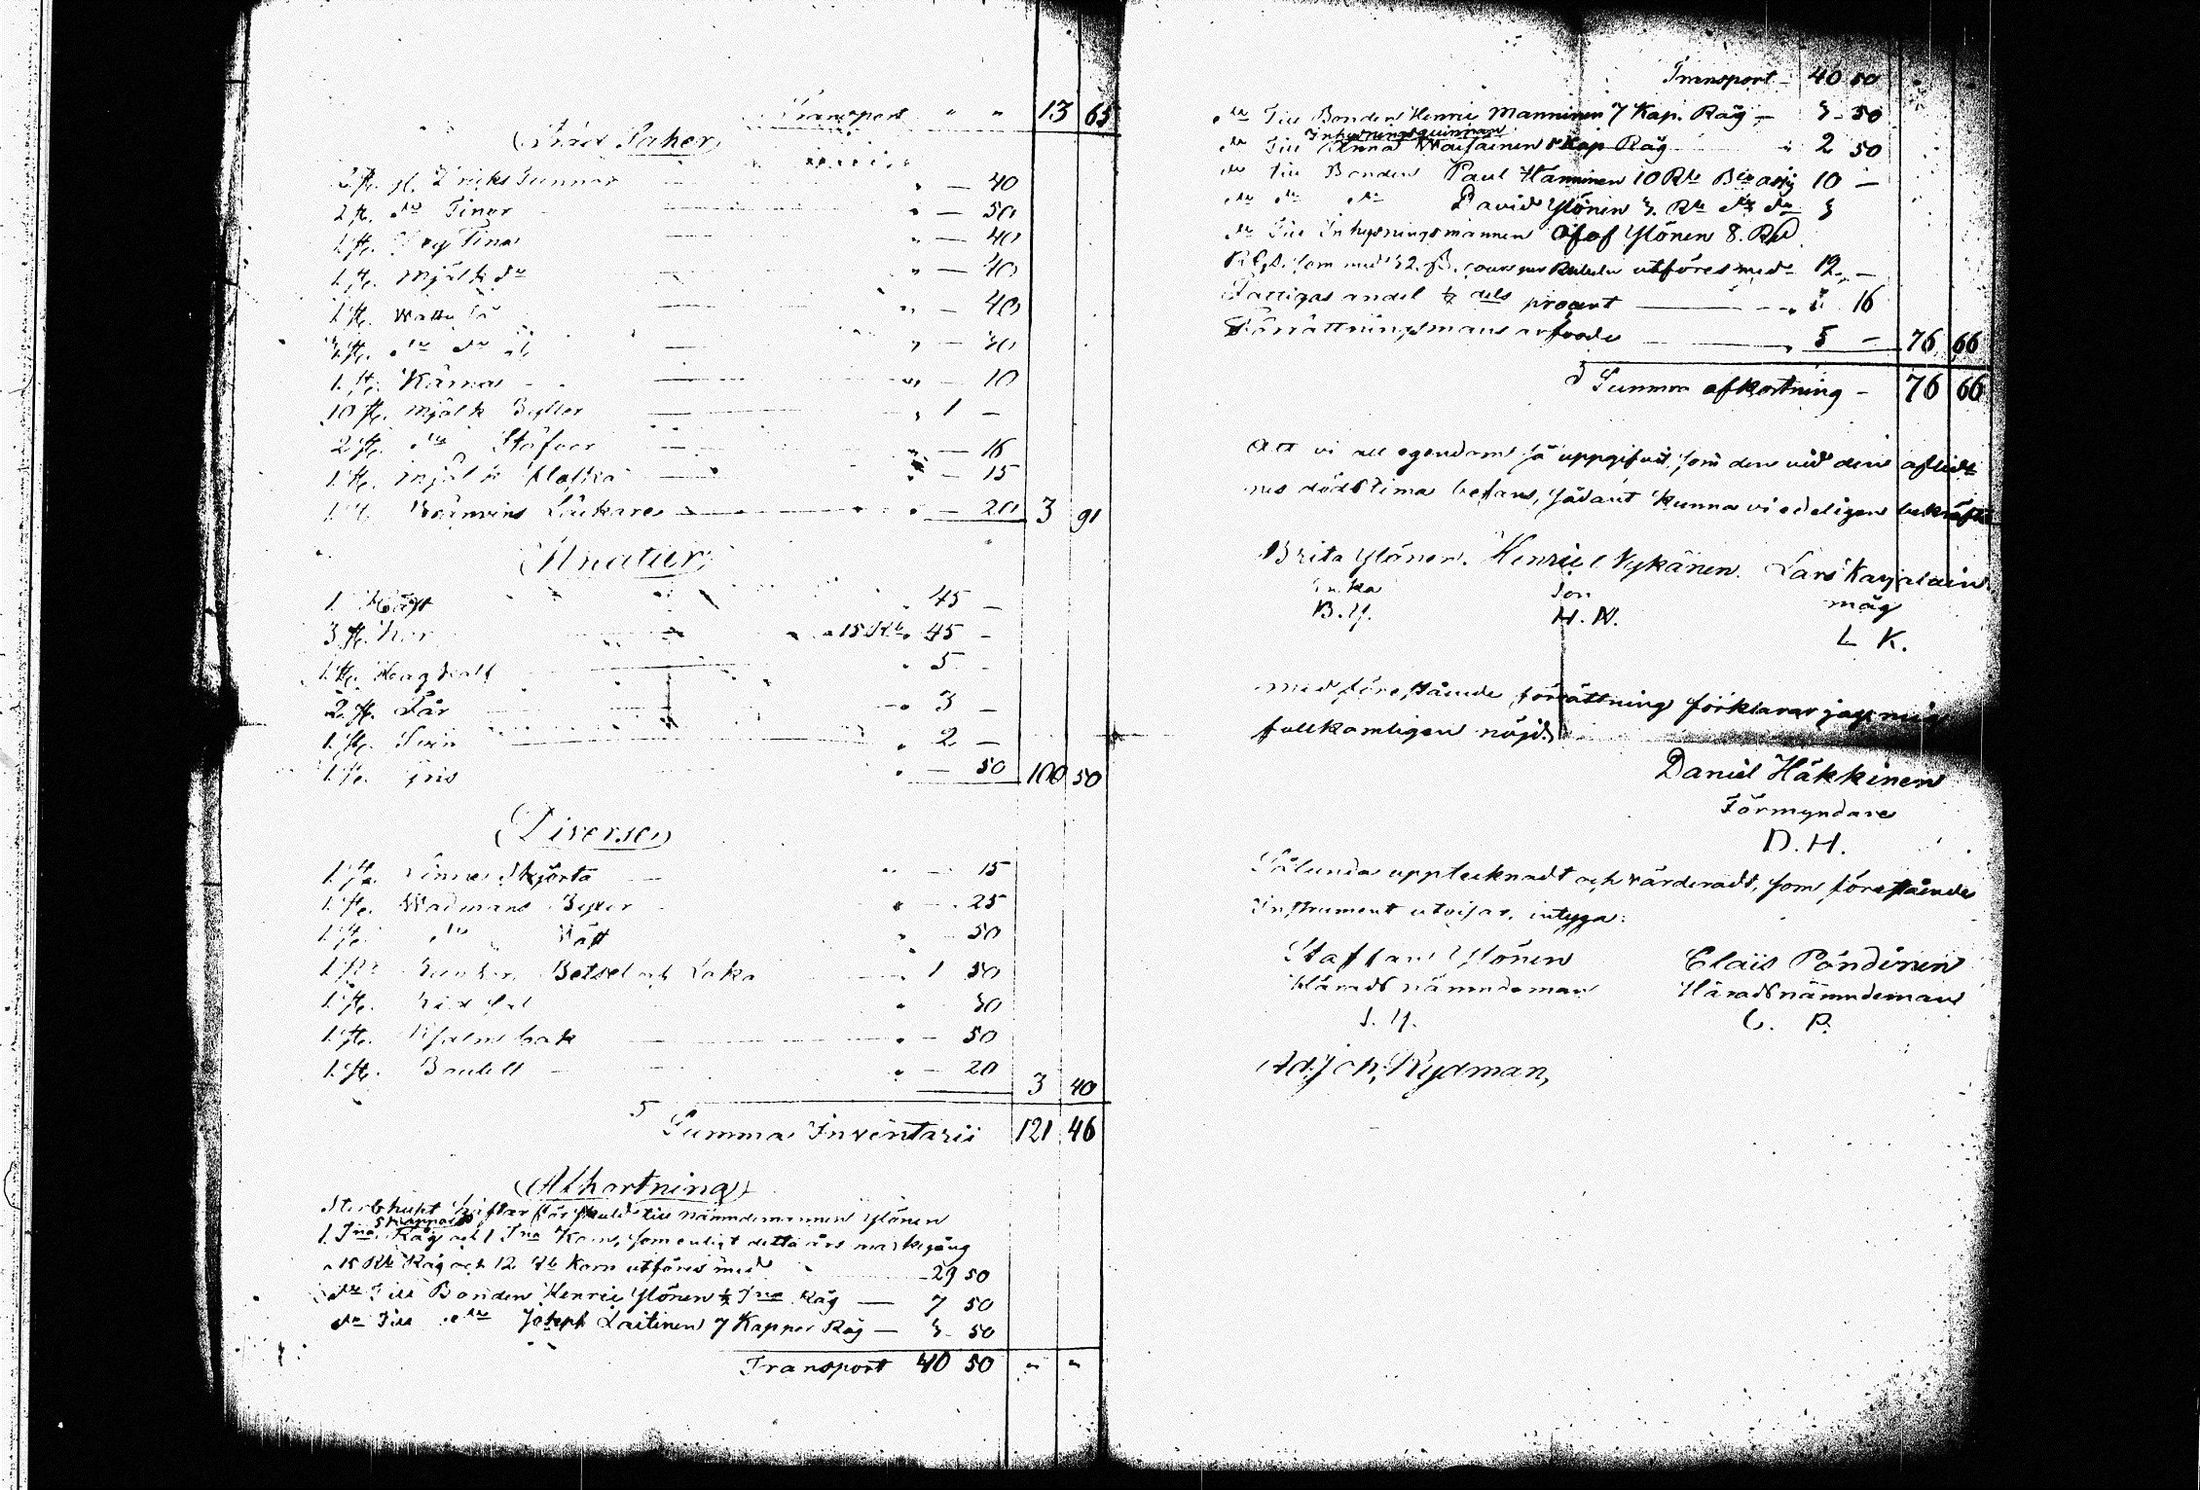 Transport " " 13 65
Träd Saker
2 st. Dricks Tunnor " — 40
2 st. do Tinor " — 50
1. st. Deg Tina " — 40
1 st. Mjölk do " — 40
1 st. Watten Så " — 40
" — 30
1. st. Kärna " — 10
10 st. Mjölk Bytter " 1 —
2 st. do Stäfvor " — 16
1 st. Mjölk Flaska " — 15
1 st. Bränvins Läckare " — 20 3 91
Creatur
1. Häst " 45 —
3 st. Kor a 15 Rb " 45 —
1. st. " 5 -
2. st. Får " 3 —
1. st. Svin " 2 —
1. st. Gris " — 50 100 50
Diverse
1. st. Linne Skjorta " — 15
1 st. Wadmans Byxor " — 25
1 st. do " 50
1 st. Betsel och Loka " 1 50
1. st. " 30
1. st. " — 50
1. st. Boutell " — 20
3 40
Summa Inventarii 121 46
Afkortning
Sterbhuset häftar för skuld till nämndemannen Ylönen
1. Tna Råg och 1 Tna Korn, som enligt detta års markegång
a 15 Rb Råg och 12 Rb Korn utföres med 29 50
do Till Bonden Henric Ylönen ½ Tna Råg — 7 50
do Till do Joseph Laitinen 7 Kappor Råg — 3 50
Transport 40 50 " "
Transport 40 50 "
do Till Bonden Henric Manninen 7 Kap. Råg — 3 - 50
Inhysningsquinnan
do Till Anna 5 Kap Råg " 2 50
do till Bonden Paul Hänninen 10 Rb Bco assig 10 —
do do do David Ylönen 3. Rb do do 3
do Till Inhysningsmannen Olof Ylönen 8. Rd
utföres med 12 —
Fattigas andel procent 16
Förrättningsmans arfvode 5 — 76 66
Summa afkortning — 76 66
Att vi all egendom så uppgifvit, som den vid dens aflidt
nes dödstima befans, sådant kunna vi edeligen bekräfta
Brita Ylönen. Henric Nykänen. Lars Karjalain
Enka Son måg
B.Y. H. N. L K.
Med förestående förrättning förklarar jag mig
fullkomligen nöjd.
Daniel Häkkinen
Förmyndare
D. H.
Sålunda upptecknadt och värderadt, som föreståënde
Instrument utvisar, intyga:
Staffan Ylönen Claës Pöndinen
Härads nämndeman Häradsnämndeman
S. Y. C. P.
Ad. Joh. Rydman,